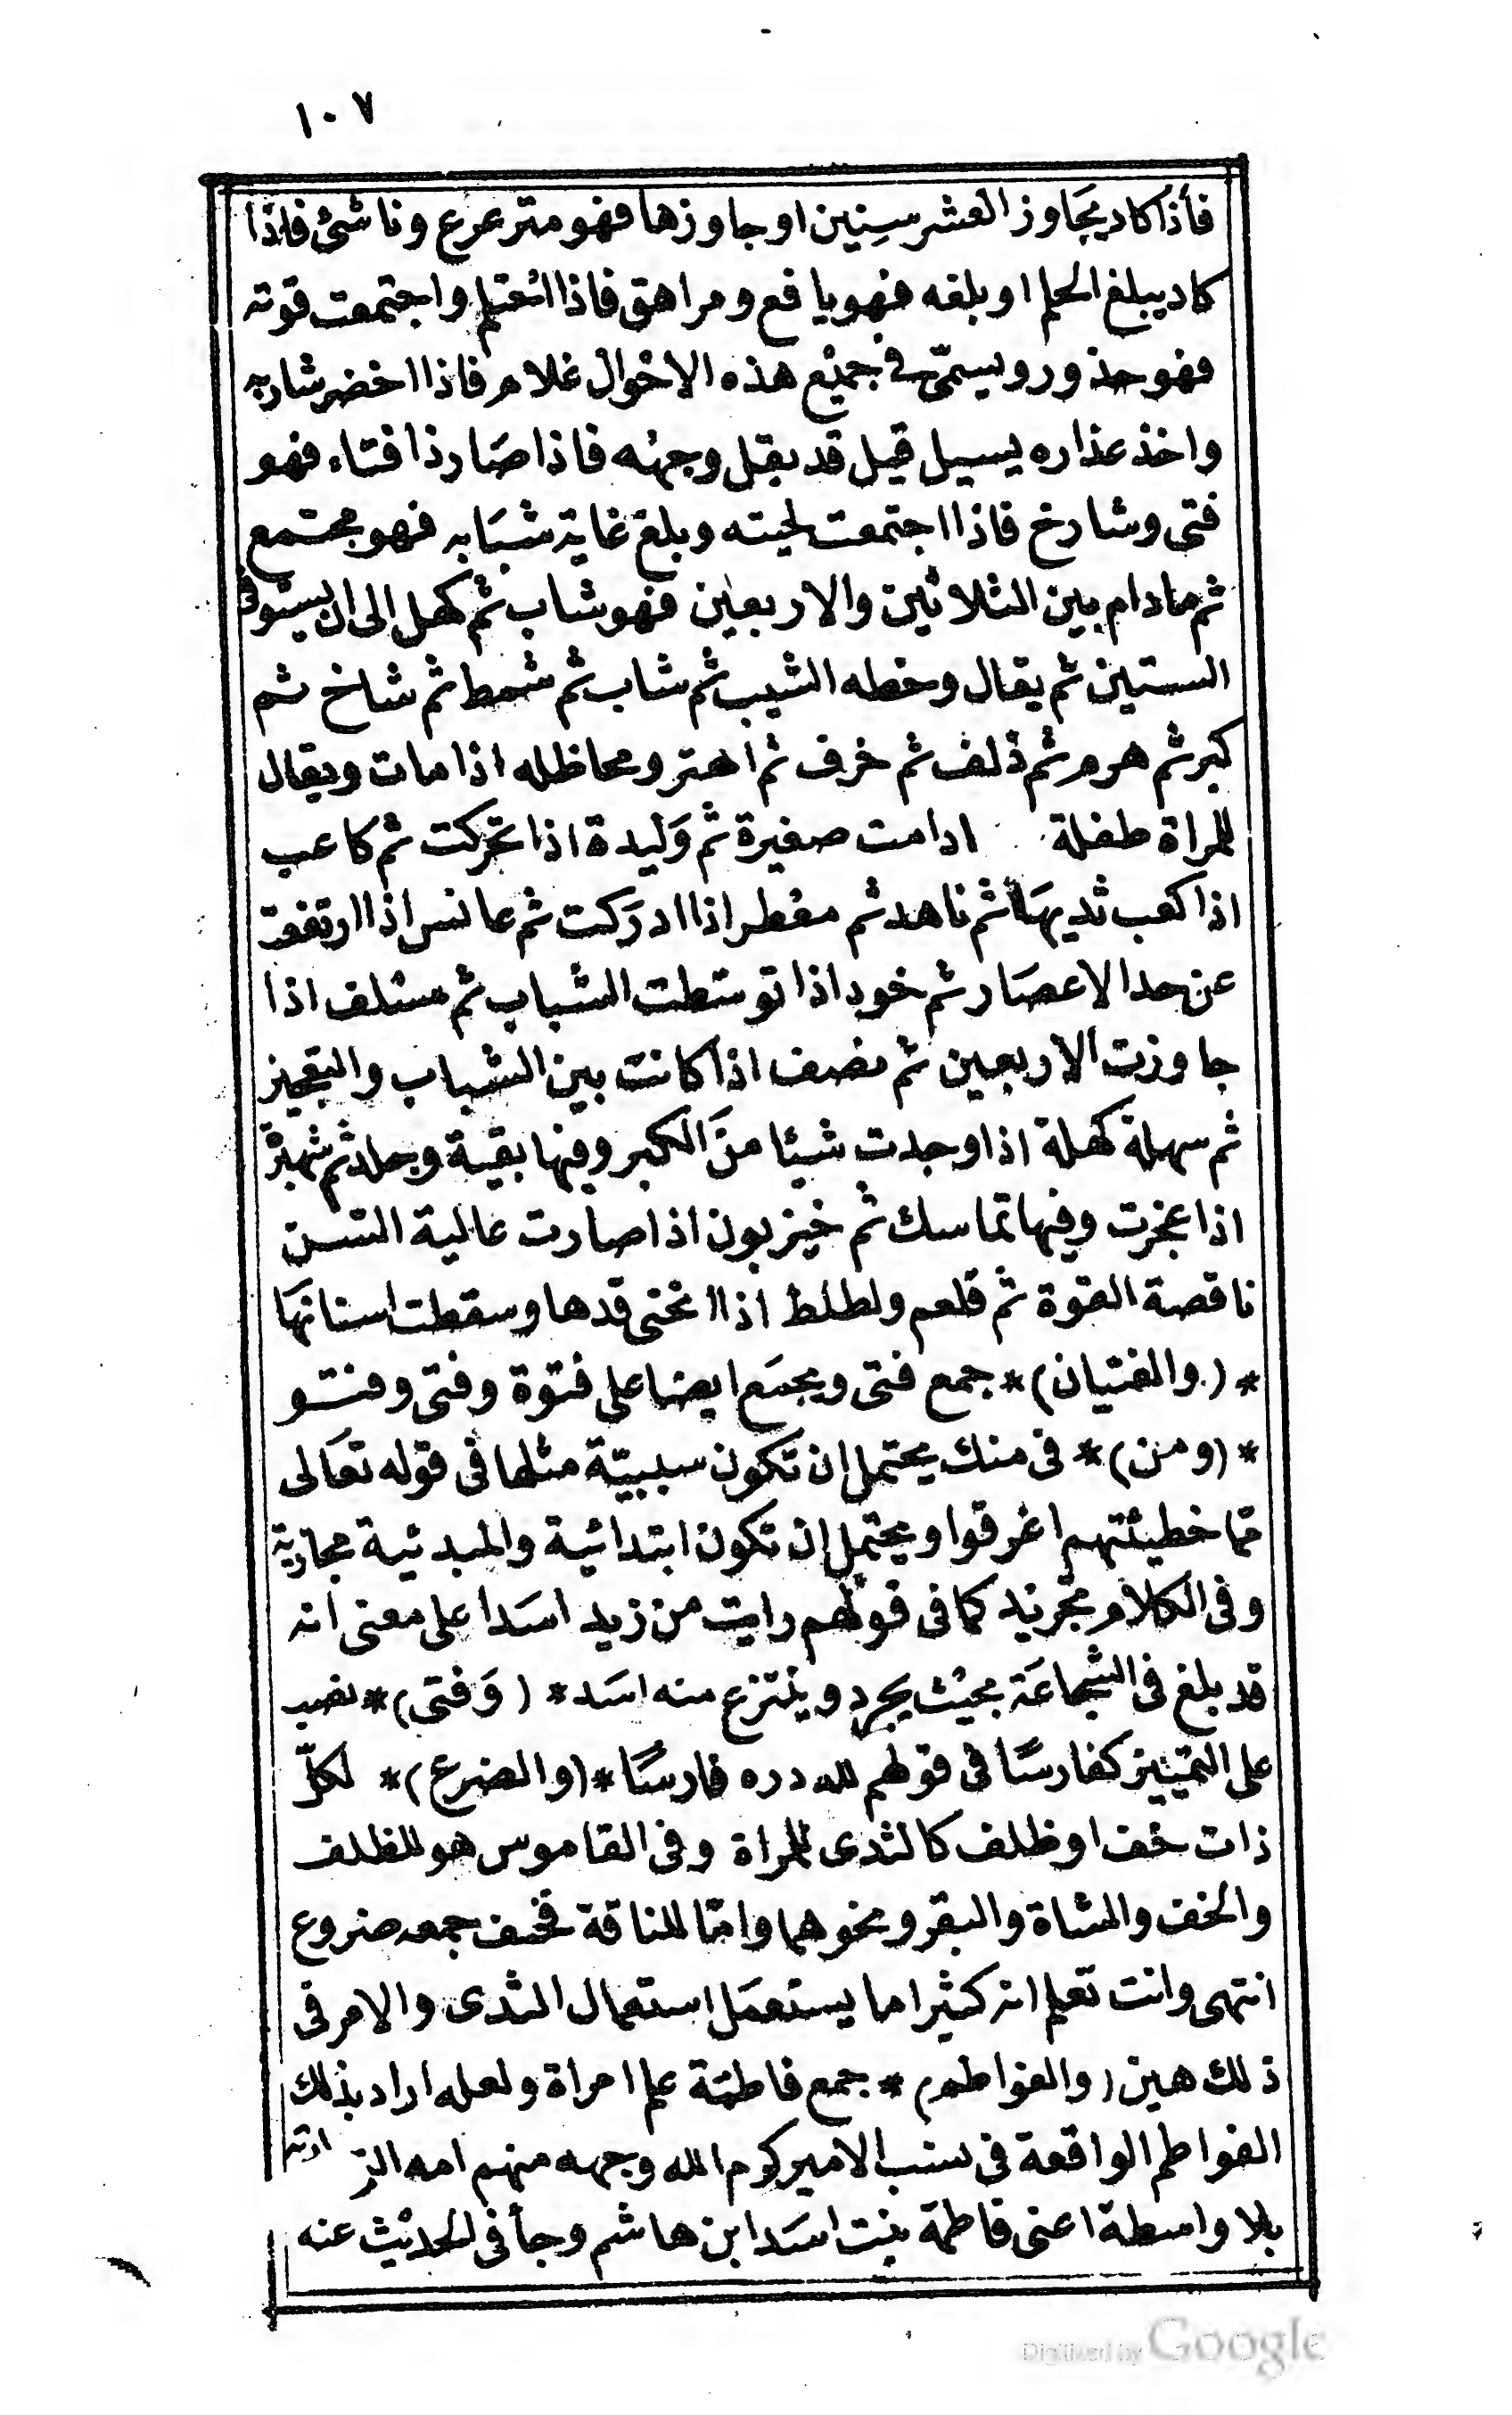 ١٠٧
فأذا كاد يجاوز العشر سنين او جاوزها فهو مترعرع وناشئ فاذا
كاد يبلغ الحلم او بلغه فهو يافع ومراهق فاذا احتلم واجتمعت قوته
فهو حذور ويسمّى في جميع هذه الاحوال غلام فاذا اخضر شاربه
واخذ عذاره يسيل قيل قد بقل وجهه فاذا صار ذا فتاء فهو
فتى وشارخ فاذا اجتمعت لحيته وبلغ غاية شبابه فهو مجتمع
ثم مادام بين الثلاثين والاربعين فهو شاب ثم كهل الى ان يستوفى
الستين ثم يقال وخطه الشيب ثم شاب ثم شمط ثم شاخ ثم
كبر ثم هرم ثم ذلف ثم خرف ثم اهتر ومحاظله اذا مات ويقال
للمراة طفلة ادامت صغيرة ثم وَليدة اذا تحركت ثم كاعب
اذا كعب ثديهَا ثم ناهد ثم معُطر اذا ادرَكت ثم عانس اذا ارتفعت
عن حد الاعصَار ثم خود اذا توسّطت الشباب ثم مسلف اذا
جاوزت الاربعين ثم نصف اذا كانت بين الشباب والتعجيز
ثم سهلة كهلة اذا وجدت شيئا منَ الكبر وفيها بقية وجلد ثم شهبرة
اذا عجزت وفيها تماسك ثم خيزبون اذا صارت عالية السن
ناقصة القوة ثم قلعم ولطلط اذا انحنى قدها وسقطت اسنانهَا
* (والفتيان) * جمع فتى ويجمَع ايضا على فتوة وفتى وفتو
* (ومن) * فى منك يحتمل ان تكون سببيّة مثلها فى قوله تعَالى
مّما خطيئتهم اغرقوا ويحتمل ان تكون ابتدائية والمبدئية مجازية
وفى الكلام تجريد كما فى قولهم رايت من زيد اسَدا على معنى انه
قد بلغ فى الشجاعَة بحيث يجرد وينتزع منه اسَد * (وَفتى) * نصب
على التمييز كفارسًا فى قولهم لله دره فارسًا * (والضرع) * لكلّ
ذات خف او ظلف كالثدى للمراة وفى القاموس هو للظلف
والخف والشاة والبقر ونحوهما وامّا للناقة فخف جمعه ضروع
انتهى وانت تعلم انه كثيرا ما يستعمَل استعمال الثدى والامر فى
ذلك هين (والفواطم) * جمع فاطمَة علم امراة ولعله اراد بذلك
الفواطم الواقعة فى نسب الامير كرم الله وجهه منهم امه التى
بلا واسطة اعنى فاطمة بنت اسَد ابن هاشم وجأ فى الحديث عنه
Digitized by Google